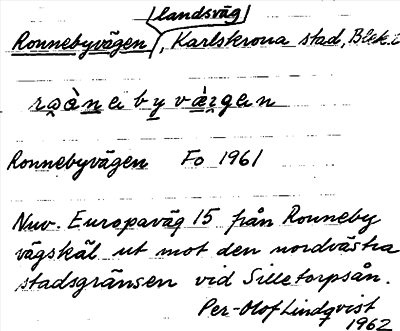 landsväg
Ronnebyvägen, Karlskrona stad, Blek.l
Ronnebyvägen Fo 1961
Nuv. Europaväg 15 från Ronneby
vägskäl ut mot den nordvästra
stadsgränsen vid Silletorpsån.
Per-Olof Lindqvist
1962